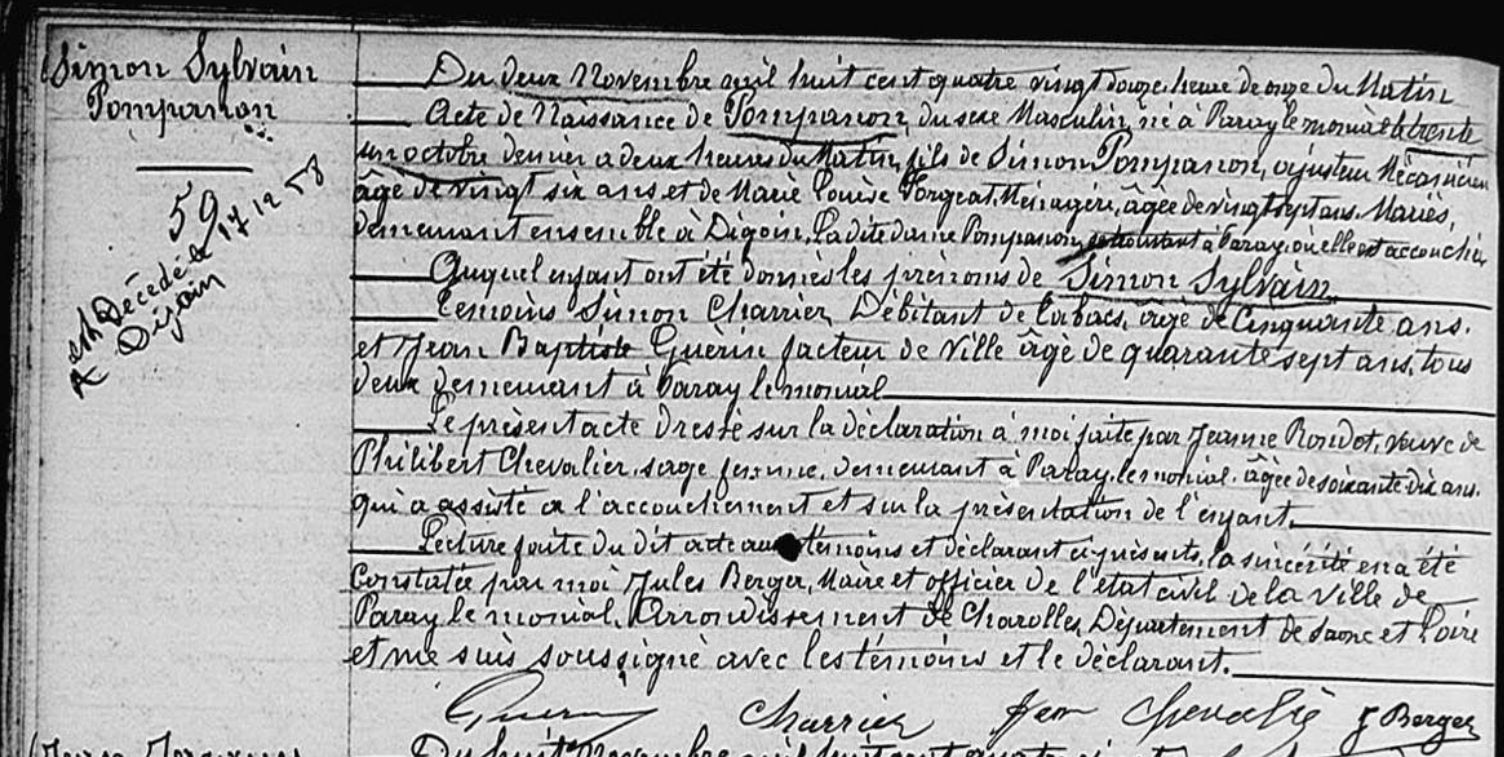 Simon Sylvain
Pompanon
59
est Décédé le 17 12 58
à Digoin
Du deux Novembre mil huit cent quatre vingt douze heure de onze du Matin
Acte de Naissance de Pompanon, du sexe Masculin, né à Paray le monial le trente
un octobre dernier a deux heures du Matin, fils de Simon Pompanon, ajusteur Mécanicien
âgé de vingt six ans et de Marie Louise Forgeat, Ménagère, âgée de vingt sept ans. Mariés,
demeurant ensemble à Digoin, la dite dame Pompanon, se trouvant à Paray où elle est accouchée
Auquel enfant ont été donnés les prénoms de Simon Sylvain
Témoins Simon Charrier, Débitant de tabacs, âgé de Cinquante ans.
et Jean Baptiste Guérin facteur de Ville âgé de quarante sept ans, tous
deux demeurant à Paray le monial
Le présent acte dressé sur la déclaration à moi faite par Jeanne Rondot, veuve de
Philibert Chevalier, sage femme, demeurant à Paray-le-monial. âgée de soixante dix ans.
qui a assisté a l'accouchement et sur la présentation de l'enfant.
Lecture faite du dit acte aux témoins et déclarant ci présents, la sincérité en a été
Constatée par moi Jules Berger, Maire et officier de l'état civil de la ville de
Paray le monial, Arrondissement de Charolles, Département de Saone et Loire
et me suis soussigné avec les témoins et le déclarant.
Guerin Charrier fem Chevalié J Berger
Du huit Novembre mil huit cent quatre